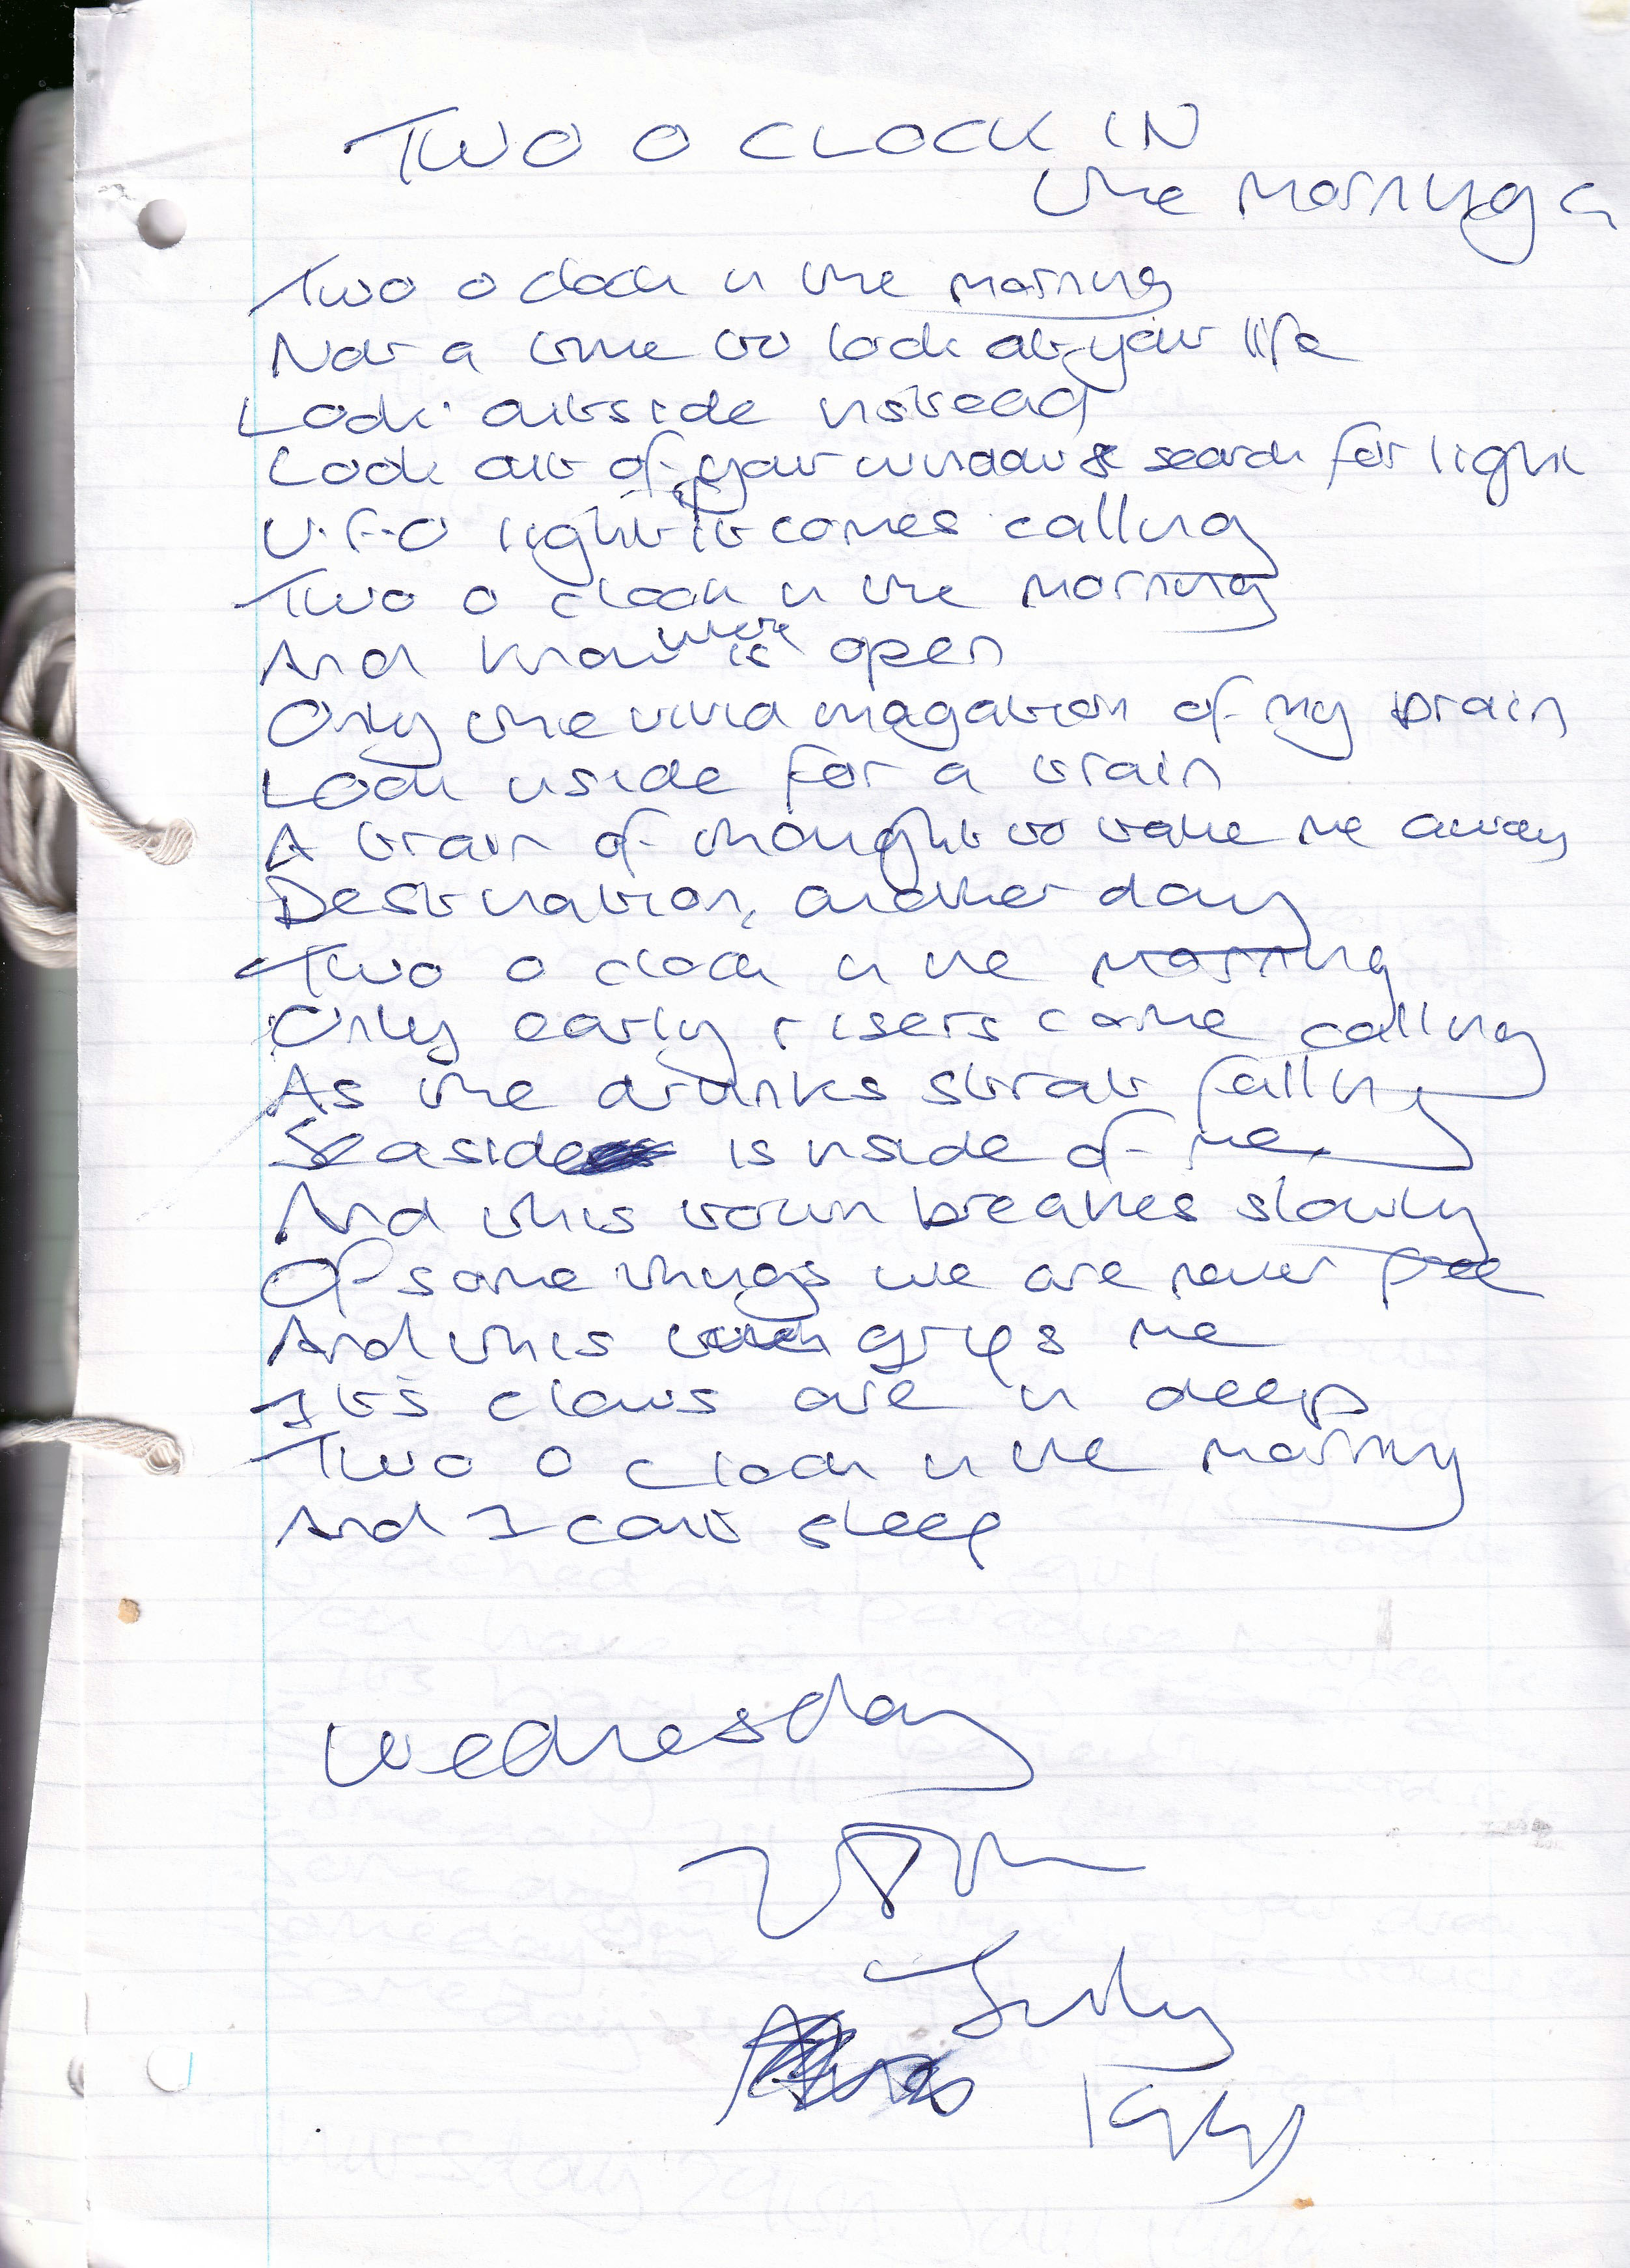 TWO O CLOCK IN
the morning
Two o clock in the morning
Not a time to look at your life
Look outside instead
Look out of your window & search for light
U.F.O light it comes calling
Two o clock in the morning
And know where is open
Only the vivid imagation of my brain
Look inside for a train
A train of thought to take me away
Destination, another day
Two o clock in the morning
Only early risers come calling
As the drunks strat falling
Seaside is inside of me,
And this town breakes slowly
Of some things we are never free
And this town grips me
It's claws are in deep
Two o clock in the morning
And I cant sleep
Wednesday
July
1999